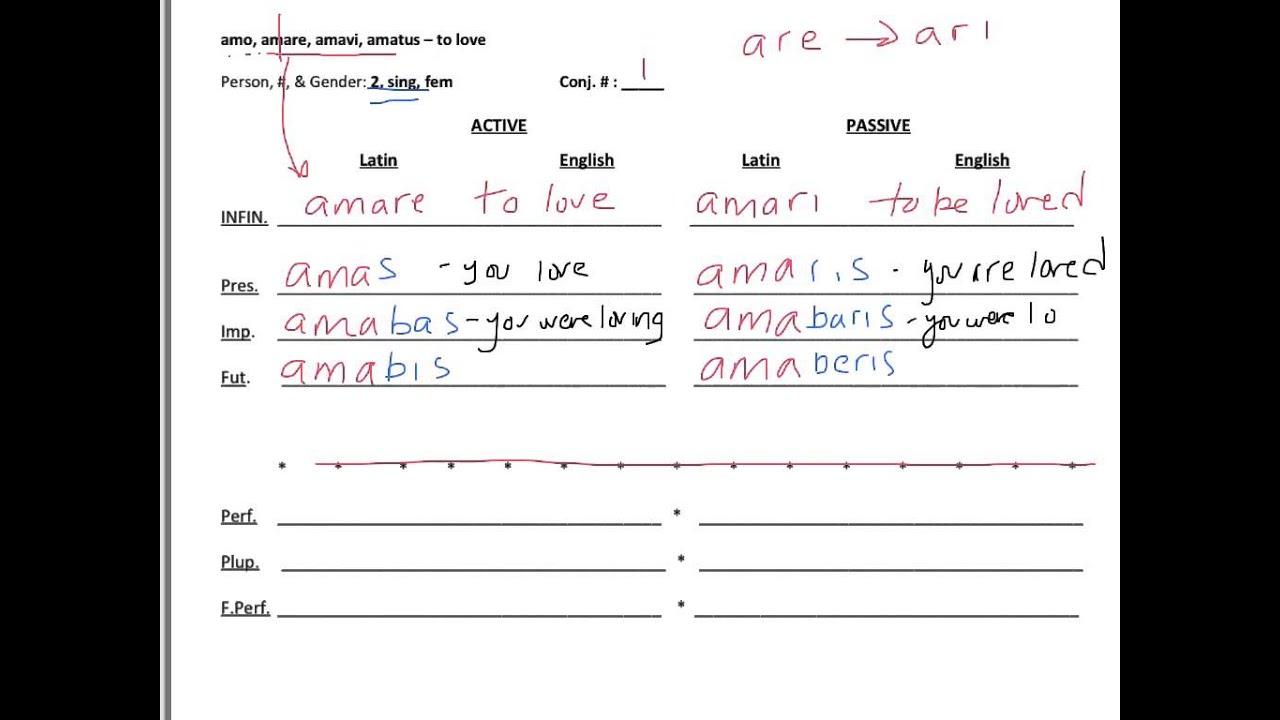 amo, amare, amavi, amatus – to love are → arı
Person, #, & Gender: 2, sing, fem Conj. # : 1
ACTIVE PASSIVE
Latin English Latin English
INFIN. amare to love amarı to be loved
Pres. amas - you love amarıs - you are loved
Imp. amabas - you were loving amabarıs - you were lo
Fut. amabıs amaberıs
* * * * * * * * * * * * * * *
Perf. *
Plup. *
F.Perf. *